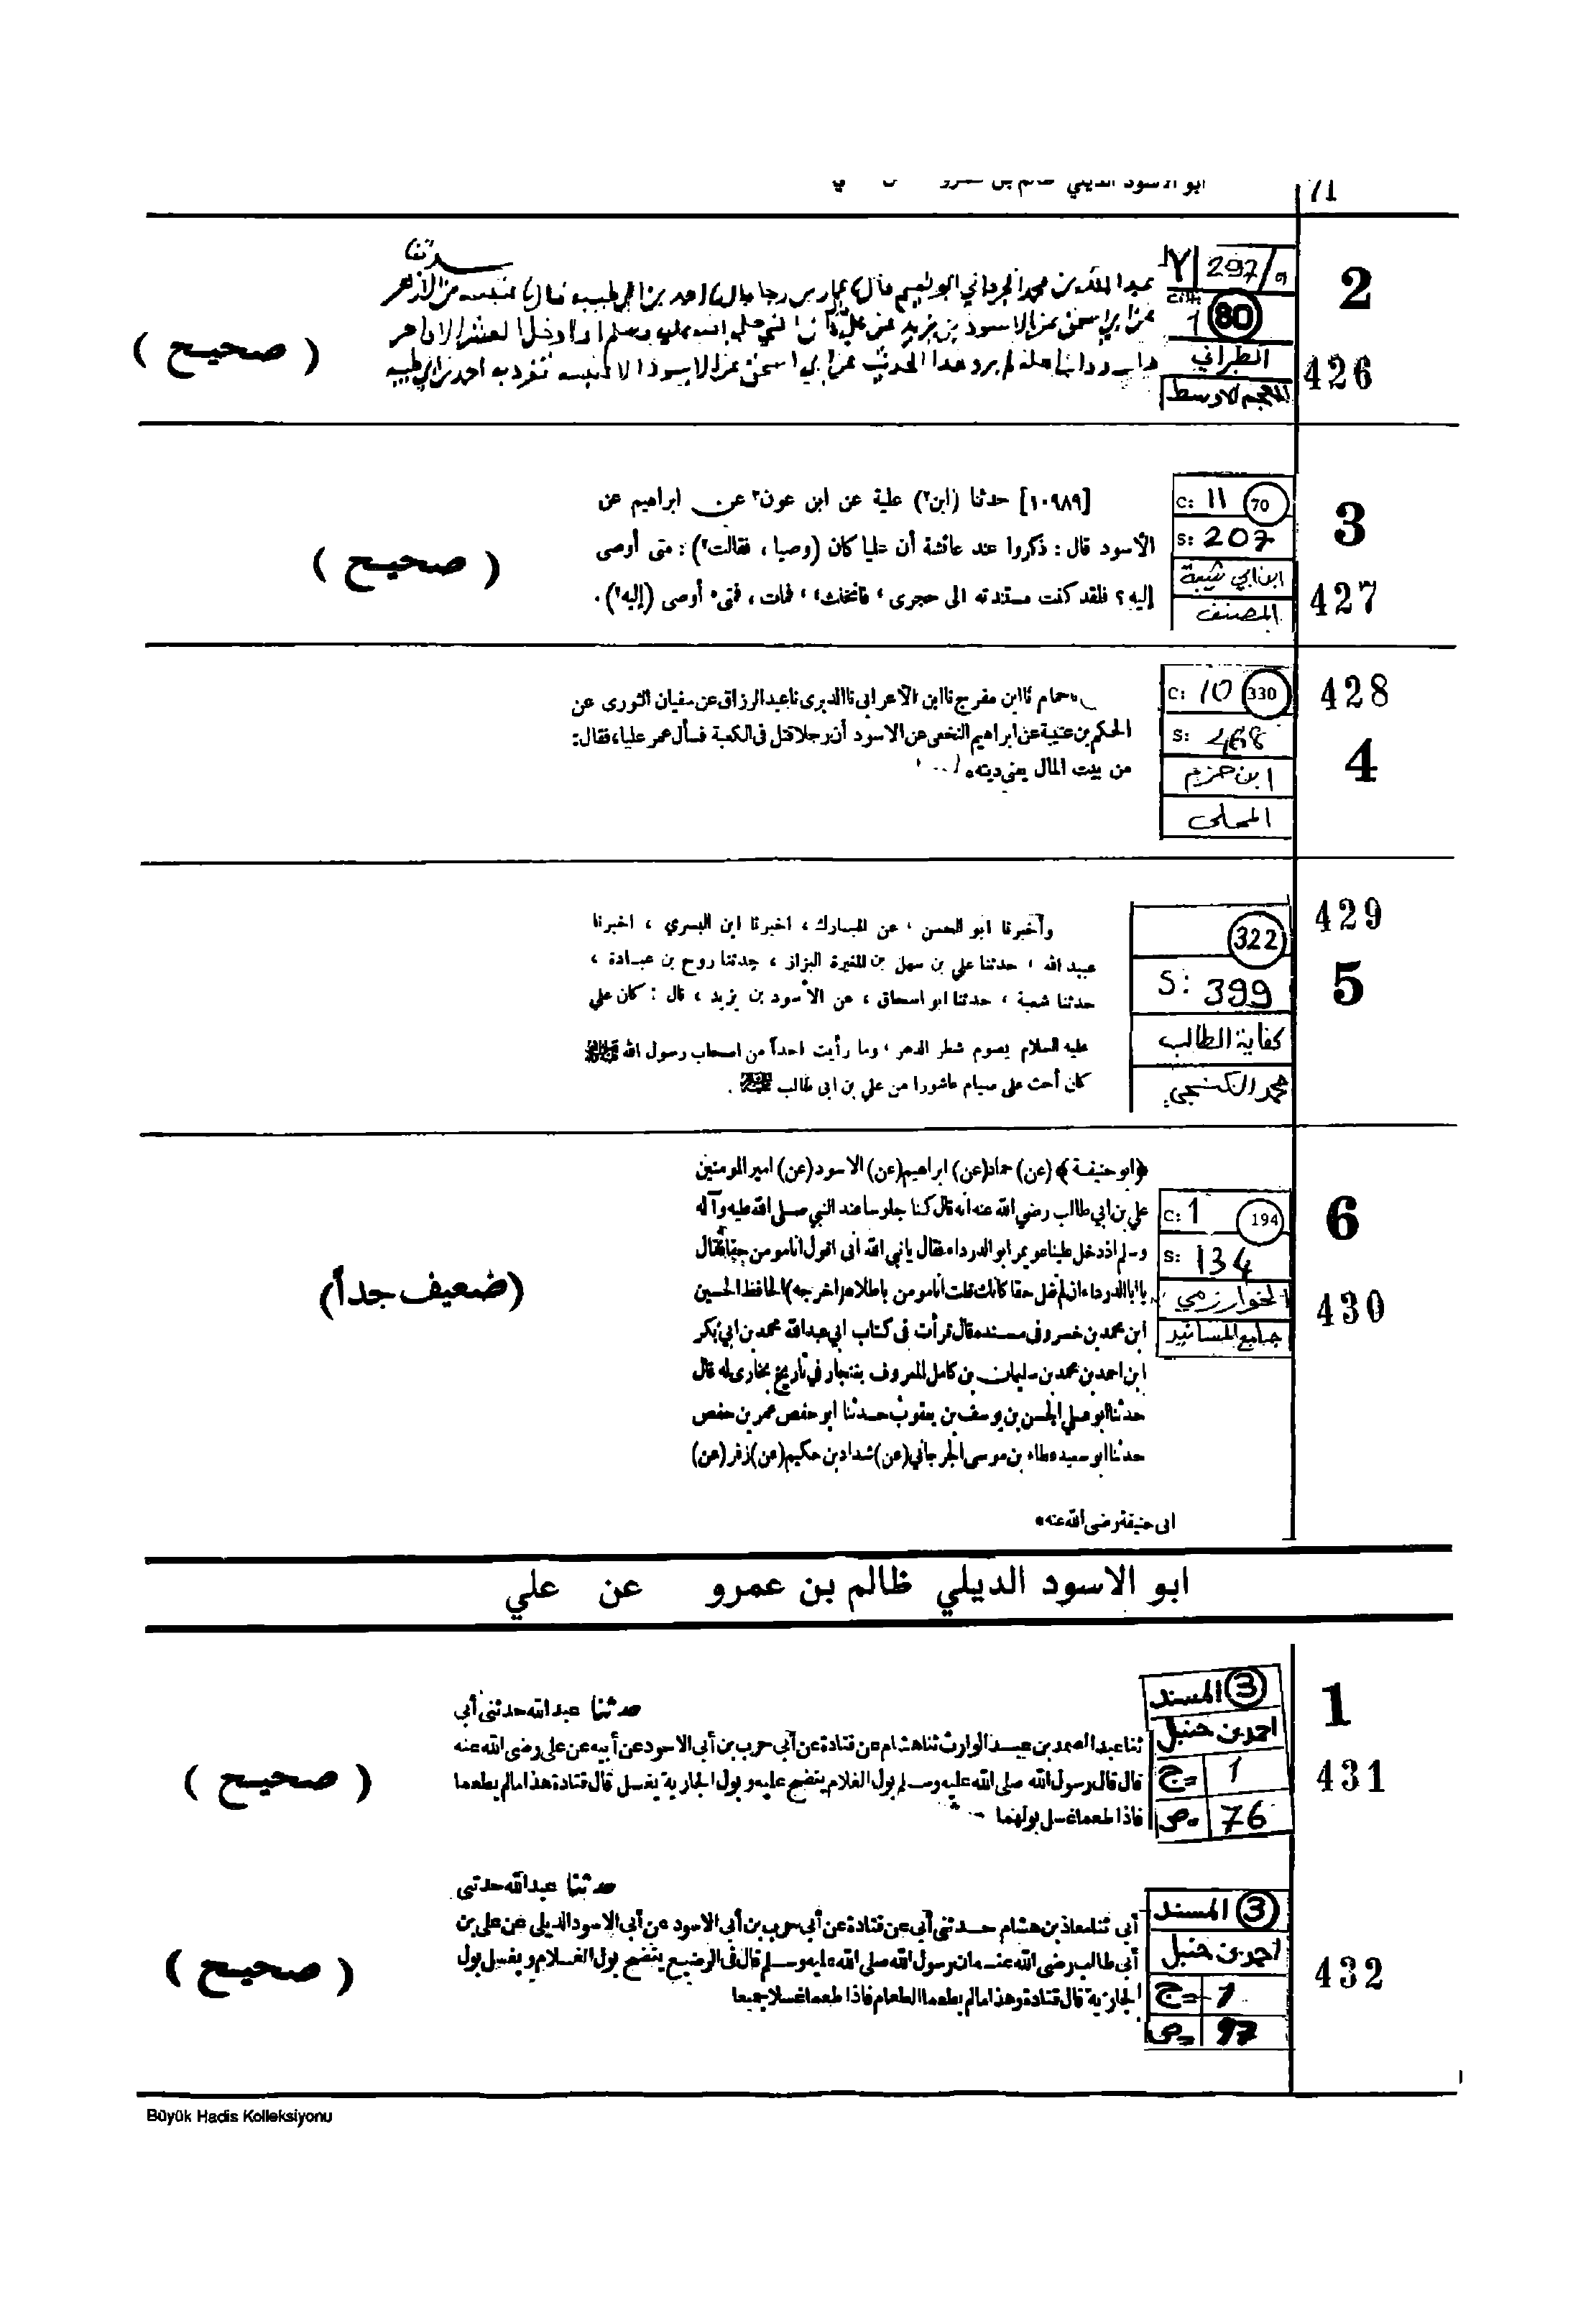 71
2
297/
80
1
الطبراني
المعجم الاوسط
426
حدثنا
عبد الملك بن محمد الجرجاني ابو نعيم قال عمار بن رجا قال احمد بن ابي طيبه قال عنبسه بن الازهر
عن ابي اسحق عن الاسود بن يزيد عن علي كان النبي صلى الله عليه وسلم اذا دخل العشر الاواخر
لم يرو هذا الحديث عن ابي اسحق عن الاسود الا عنبسه تفرد به احمد بن ابي طيبه
( صحيح )
3
C: 11 70
S: 207
ابن ابي شيبة
المصنف
427
[١٠٩٨٩] حدثنا (ابن٢) علية عن ابن عون٣ عن ابراهيم عن
الأسود قال : ذكروا عند عائشة أن عليا كان (وصيا ، فقالت٣) : متى أوصى
إليه ؟ فلقد كنت مستندته الى حجرى ، فانخنث ، فمات ، فمتى أوصى (إليه) .
( صحيح )
428
4
C: 10 330
S: 468
ابن حزم
المحلى
نا حمام نا ابن مفرج نا ابن الأعرابى نا الدبرى نا عبد الرزاق عن سفيان الثورى عن
الحكم بن عتيبة عن ابراهيم النخعى عن الاسود أن رجلا قتل فى الكعبة فسأل عمر عليا ، فقال :
من بيت المال يعنى ديته .
429
5
322
S: 399
كفاية الطالب
محمد الكنجي
وأخبرنا ابو الحسن ، عن المبارك ، اخبرنا ابن البسري ، اخبرنا
عبيد الله ، حدثنا علي بن سهل بن المغيرة البزاز ، حدثنا روح بن عبادة ،
حدثنا شعبة ، حدثنا ابو اسحاق ، عن الأسود بن يزيد ، قال : كان علي
عليه السلام يصوم شطر الدهر ، وما رأيت احداً من اصحاب رسول الله ﷺ
كان أحث على صيام عاشورا من علي بن ابى طالب .
6
C: 1 194
S: 134
الخوارزمي
جامع المسانيد
430
﴿ابو حنيفة﴾ (عن) حماد (عن) ابراهيم (عن) الاسود (عن) امير المومنين
علي بن ابي طالب رضي الله عنه انه قال كنا جلوسا عند النبي صلى الله عليه وآله
وسلم اذ دخل علينا عويمر ابو الدرداء فقال يا نبي الله انى اقول انا مومن حقا فقال
يا ابا الدرداء ان لم تقل حقا كانك قلت انا مومن باطلا (اخرجه) الحافظ الحسين
ابن محمد بن خسرو فى مسنده قال قرأت فى كتاب ابي عبد الله محمد بن ابي بكر
ابن احمد بن محمد بن سليمان بن كامل المعروف بغنجار في تأريخ بخارى له قال
حدثنا ابو علي الحسن بن يوسف بن يعقوب حدثنا ابو حفص عمر بن حفص
حدثنا ابو سعيد عطاء بن موسى الجرجاني (عن) شداد بن حكيم (عن) زفر (عن)
ابى حنيفة رضى الله عنه *
(ضعيف جداً)
ابو الاسود الديلي ظالم بن عمرو عن علي
1
3 المسند
احمد بن حنبل
ج= 1
ص= 76
431
حدثنا عبد الله حدثنى أبي
ثنا عبد الصمد بن عبد الوارث ثنا هشام عن قتادة عن أبى حرب بن أبى الاسود عن أبيه عن على رضى الله عنه
قال قال رسول الله صلى الله عليه وسلم بول الغلام ينضح عليه وبول الجارية يغسل قال قتادة هذا ما لم يطعما
فاذا طعما غسل بولهما
( صحيح )
3 المسند
احمد بن حنبل
ج= 1
ص= 97
432
حدثنا عبد الله حدثنى
أبي ثنا معاذ بن هشام حدثنى أبى عن قتادة عن أبى حرب بن أبى الاسود عن أبى الاسود الديلى عن على بن
أبى طالب رضى الله عنه ان رسول الله صلى الله عليه وسلم قال فى الرضيع ينضح بول الغلام ويغسل بول
الجارية قال قتادة وهذا ما لم يطعما الطعام فاذا طعما غسلا جميعا
( صحيح )
Büyük Hadis Kolleksiyonu